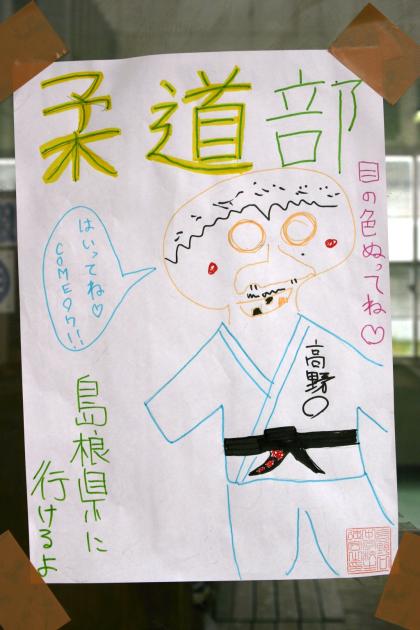 柔道部
目の色ぬってね♡
はいってね♡
COMEカケ!!
高野○
島根県に
行けるよ